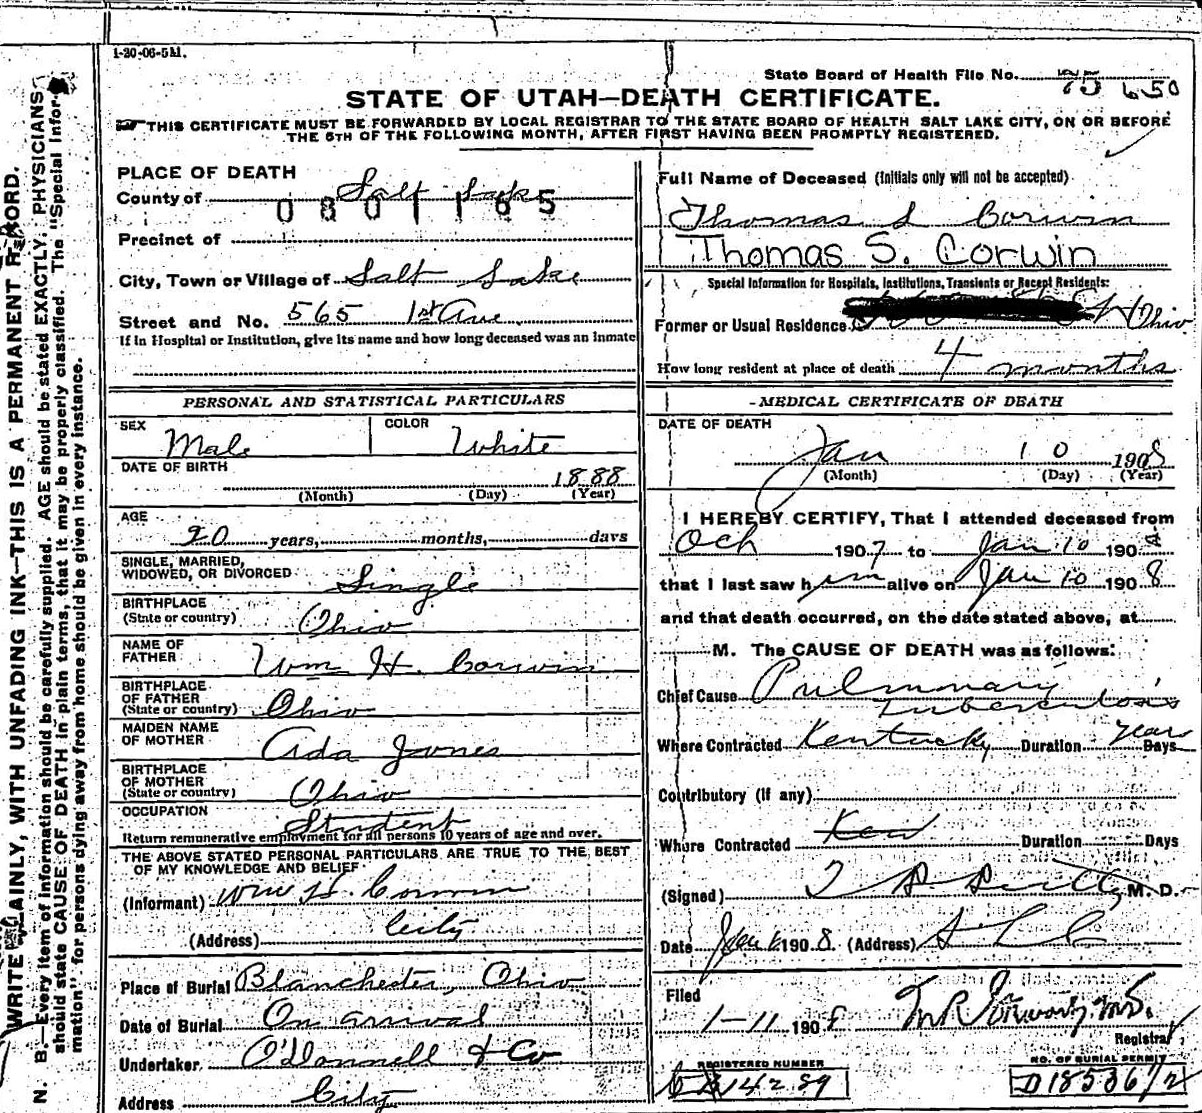 1-20-06-5M.
State Board of Health File No. 75 650
STATE OF UTAH—DEATH CERTIFICATE.
THIS CERTIFICATE MUST BE FORWARDED BY LOCAL REGISTRAR TO THE STATE BOARD OF HEALTH SALT LAKE CITY, ON OR BEFORE
THE 5TH OF THE FOLLOWING MONTH, AFTER FIRST HAVING BEEN PROMPTLY REGISTERED.
PLACE OF DEATH
County of Salt Lake
0801165
Precinct of
City, Town or Village of Salt Lake
Street and No. 565 1st Ave
If in Hospital or Institution, give its name and how long deceased was an inmate
Full Name of Deceased (Initials only will not be accepted)
Thomas S Corwin
Thomas S. Corwin
Special Information for Hospitals, Institutions, Transients or Recent Residents:
Former or Usual Residence Ohio
How long resident at place of death 4 months
PERSONAL AND STATISTICAL PARTICULARS
SEX Male COLOR White
DATE OF BIRTH 1888
(Month) (Day) (Year)
AGE
20 years, months, days
SINGLE, MARRIED,
WIDOWED, OR DIVORCED Single
BIRTHPLACE
(State or country) Ohio
NAME OF
FATHER Wm H. Corwin
BIRTHPLACE
OF FATHER
(State or country) Ohio
MAIDEN NAME
OF MOTHER Ada Jones
BIRTHPLACE
OF MOTHER
(State or country) Ohio
OCCUPATION Student
Return remunerative employment for all persons 10 years of age and over.
THE ABOVE STATED PERSONAL PARTICULARS ARE TRUE TO THE BEST
OF MY KNOWLEDGE AND BELIEF
(Informant) Wm H. Corwin
(Address) City
Place of Burial Blanchester, Ohio
Date of Burial On arrival
Undertaker O'Donnell & Co
Address City
MEDICAL CERTIFICATE OF DEATH
DATE OF DEATH
Jan 10 1908
(Month) (Day) (Year)
I HEREBY CERTIFY, That I attended deceased from
Och 1907 to Jan 10 1908
that I last saw him alive on Jan 10 1908
and that death occurred, on the date stated above, at
M. The CAUSE OF DEATH was as follows:
Chief Cause Pulmonary
Tuberculosis
Where Contracted Kentucky Duration Year Days
Contributory (if any)
Where Contracted Ken Duration Days
(Signed) M. D.
Date Jan 1908 (Address) S L C
Filed
1-11 1908
Registrar
REGISTERED NUMBER
NO. OF BURIAL PERMIT
D18536
WRITE PLAINLY, WITH UNFADING INK—THIS IS A PERMANENT RECORD.
N. B.—Every item of information should be carefully supplied. AGE should be stated EXACTLY. PHYSICIANS
should state CAUSE OF DEATH in plain terms, that it may be properly classified. The "Special Infor-
mation" for persons dying away from home should be given in every instance.